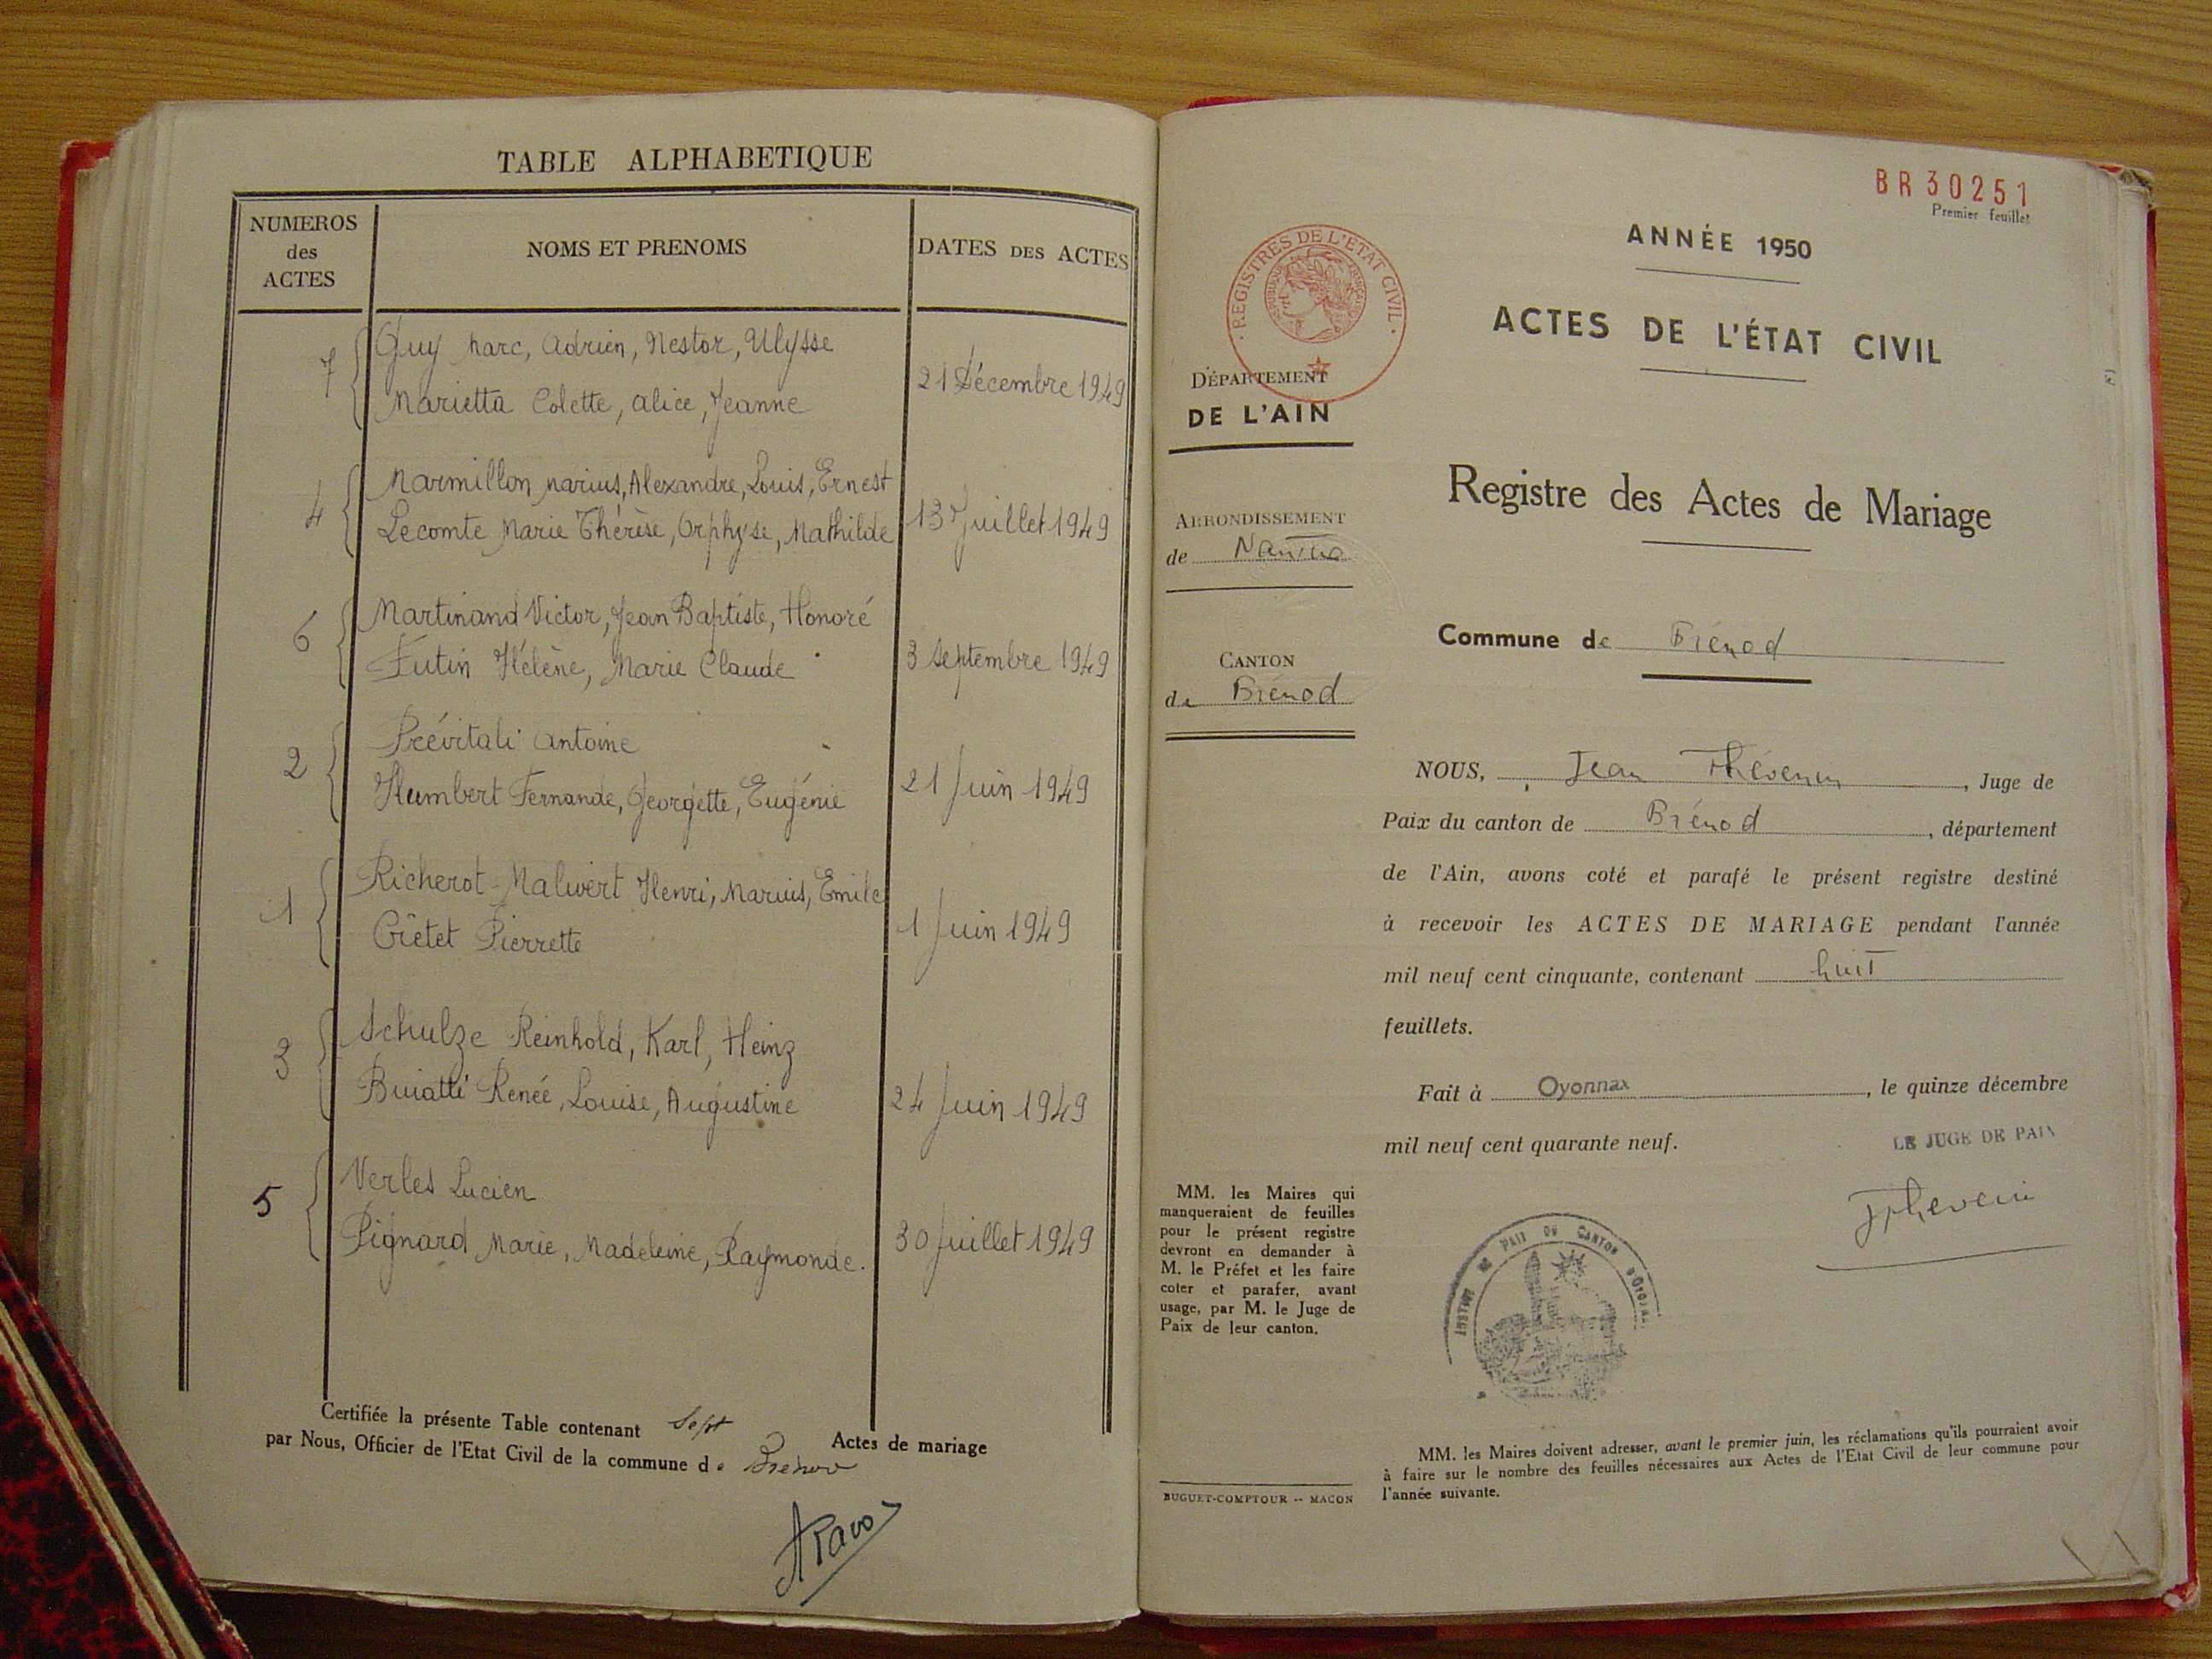 TABLE ALPHABETIQUE
NUMEROS
des
ACTES
NOMS ET PRENOMS
DATES DES ACTES
Guy Marc, Adrien, Nestor, Ulysse
7
21 Décembre 1949
Marietta Colette, Alice, Jeanne
Marmillon Marius, Alexandre, Louis, Ernest
4
Lecomte Marie Thérèse, Orphyse, Mathilde
13 Juillet 1949
Martinand Victor, Jean Baptiste, Honoré
6
Futin Hélène, Marie Claude
3 Septembre 1949
Prévitali Antoine
2
Humbert Fernande, Georgette, Eugénie
21 Juin 1949
Richerot-Malivert Henri, Marius, Emile
1
Gietet Pierrette
1 Juin 1949
Schulze Reinhold, Karl, Heinz
3
Buiatti Renée, Louise, Augustine
24 Juin 1949
Verles Lucien
5
Pignard Marie, Madeleine, Raymonde.
30 Juillet 1949
Certifiée la présente Table contenant Sept Actes de mariage
par Nous, Officier de l'Etat Civil de la commune de Brénod
BR30251
Premier feuillet
ANNÉE 1950
ACTES DE L'ÉTAT CIVIL
REGISTRES DE L'ETAT CIVIL
DÉPARTEMENT
DE L'AIN
Registre des Actes de Mariage
ARRONDISSEMENT
de Nantua
Commune de Brénod
CANTON
de Brénod
NOUS, Jean Thévenin, Juge de
Paix du canton de Brénod, département
de l'Ain, avons coté et parafé le présent registre destiné
à recevoir les ACTES DE MARIAGE pendant l'année
mil neuf cent cinquante, contenant huit
feuillets.
Fait à Oyonnax, le quinze décembre
mil neuf cent quarante neuf.
LE JUGE DE PAIX
JThevenin
MM. les Maires qui
manqueraient de feuilles
pour le présent registre
devront en demander à
M. le Préfet et les faire
coter et parafer, avant
usage, par M. le Juge de
Paix de leur canton.
DE PAIX DU CANTON
BUGUET-COMPTOUR -- MACON
MM. les Maires doivent adresser, avant le premier juin, les réclamations qu'ils pourraient avoir
à faire sur le nombre des feuilles nécessaires aux Actes de l'Etat Civil de leur commune pour
l'année suivante.